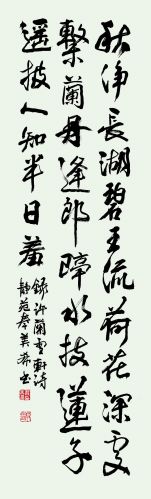 秋淨長湖碧玉流荷花深處
繫蘭舟逢郎隔水投蓮子
遙被人知半日羞
錄許蘭雪軒詩
靜苑李美